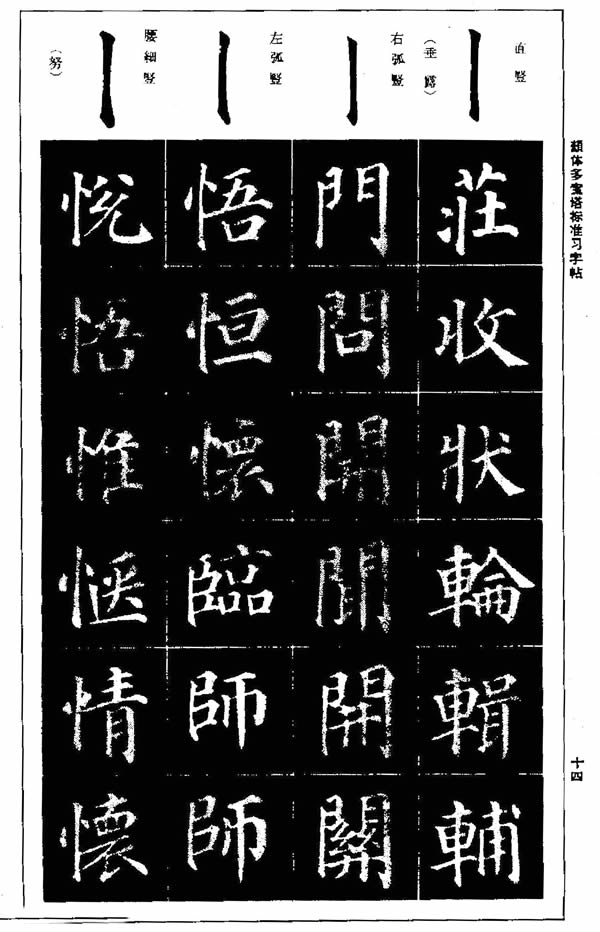 颜体多宝塔标准习字帖
十四
直豎
（垂露）
莊收狀輪輯輔
右弧豎
門問開開關
左弧豎
悟恒懷臨師師
腰細豎
（努）
悅悟惟愜情懷